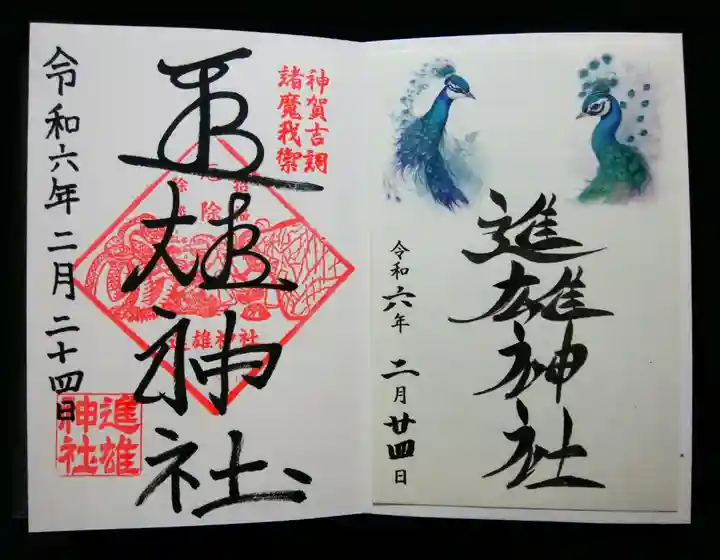 進雄神社
令和六年 二月廿四日
神賀吉調
諸魔我禦
進雄神社
令和六年二月二十四日
進雄神社
進雄
神社